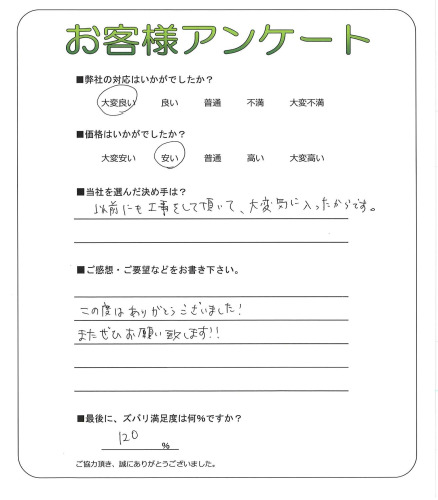 お客様アンケート
■弊社の対応はいかがでしたか？
大変良い 良い 普通 不満 大変不満
■価格はいかがでしたか？
大変安い 安い 普通 高い 大変高い
■当社を選んだ決め手は？
以前にも工事をして頂いて、大変気に入ったからです。
■ご感想・ご要望などをお書き下さい。
この度はありがとうございました！
またぜひお願い致します!!
■最後に、ズバリ満足度は何％ですか？
120 ％
ご協力頂き、誠にありがとうございました。